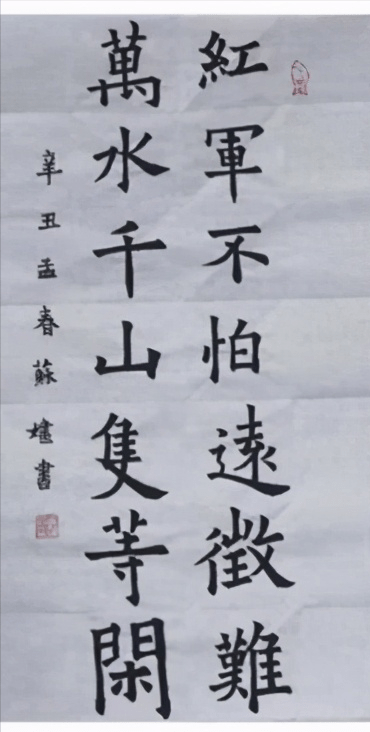 紅軍不怕遠徵難
萬水千山隻等閑
辛丑孟春蘇書